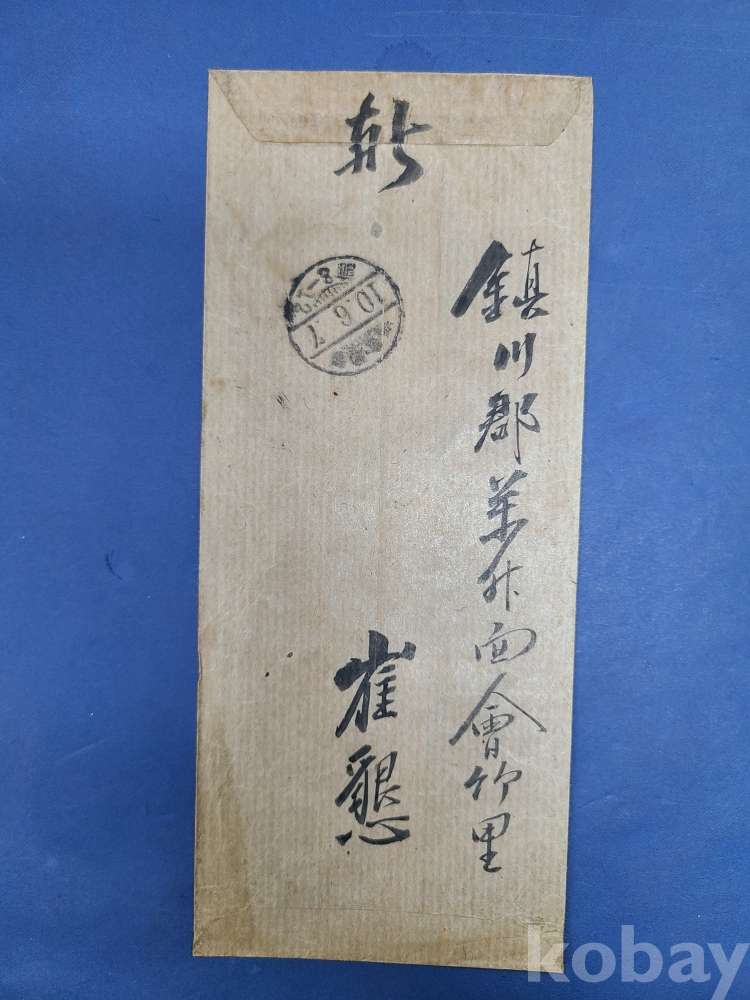 鎮川郡萬升面會竹里
崔懇
10.6.7
前8-12
kobay